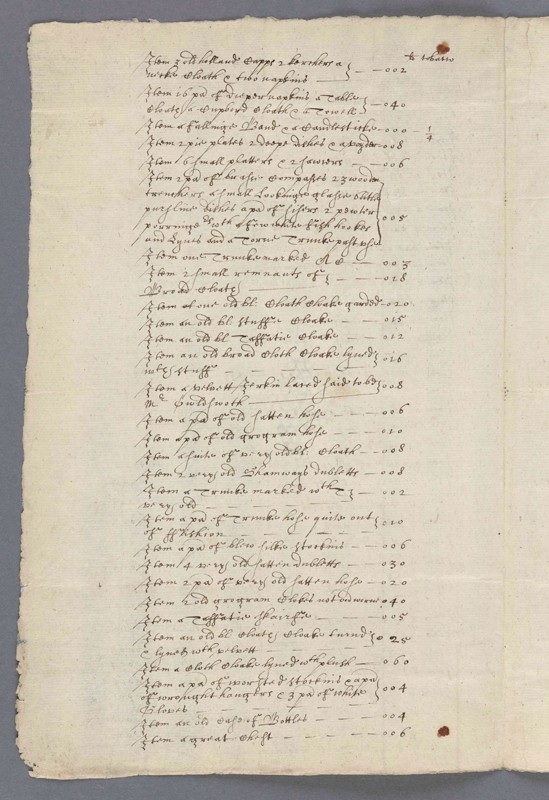 lb tobacco
Item 3 old holland Capps 2 kerchers a
necke Cloath & two napkins — 002
Item 16 pa of Dieper napkins a Table
Cloath a Cupbord Cloath & a Towell — 040
Item a fallinge Band & a Candlesticke — 000 — 1/4
Item 2 pie plates 2 deepe dishes & a — 008
Item 6 small platters & 2 sawcers — 006
Item 2 pa of brasse Compasses 23 wooden
trenchers a small Lookinge glasse 6 little
pursline dishes a pa of sisers 2 pewter
porringers wth a few white fish hookes
and Lynes and a Torne Trunke past use — 005
Item one Trunke marked R C — 003
Item 2 small remnants of
Broad Cloath — 018
Item one old bl: Cloath Cloake garded — 020
Item an old bl: stuffe Cloake — 015
Item an old bl Taffatie Cloake — 012
Item an old broad Cloth Cloake lyned
wth stuff — 016
Item a velvett Jerkin laced said to be
Mr Gouldsworth — 008
Item a pa of old satten hose — 006
Item a pa of old grogram hose — 010
Item a suite of very old bl. Cloath — 008
Item 2 very old Shamways dubletts — 008
Item a Trunke marked wth T
very old — 002
Item a pa of Trunke hose quite out
of fashion — 010
Item a pa of blew silke stockins — 006
Item 4 very old satten dubletts — 030
Item 2 pa of very old satten hose — 020
Item 2 old grogram Clokes not worne — 040
Item a Taffatie skarfe — 005
Item an old bl Cloath Cloake turnd
& lyned wth velvett — 025
Item a Cloth Cloake lyned wth plush — 060
Item a pa of worsted stockins & a pa
of wrought hangers & 3 pa of white
Gloves — 004
Item an old Case of Bottles — 004
Item a great Chest — 006